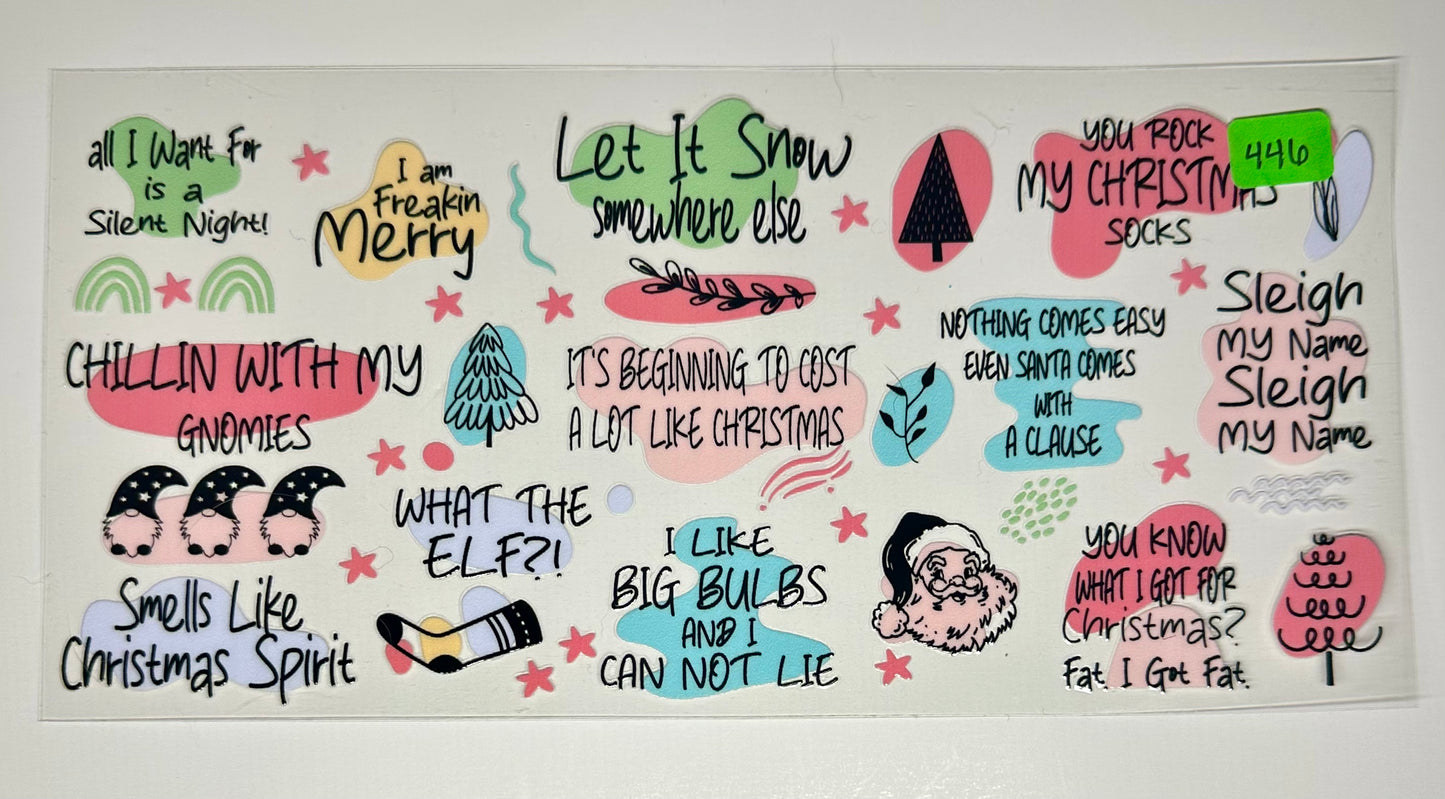 all I Want For
is a
Silent Night!
I am
Freakin
Merry
Let It Snow
somewhere else
YOU ROCK
MY CHRISTMAS
SOCKS
446
CHILLIN WITH MY
GNOMIES
IT'S BEGINNING TO COST
A LOT LIKE CHRISTMAS
NOTHING COMES EASY
EVEN SANTA COMES
WITH
A CLAUSE
Sleigh
MY Name
Sleigh
MY Name
WHAT THE
ELF?!
Smells Like
Christmas Spirit
I LIKE
BIG BULBS
AND I
CAN NOT LIE
YOU KNOW
WHAT I GOT FOR
Christmas?
Fat. I Got Fat.